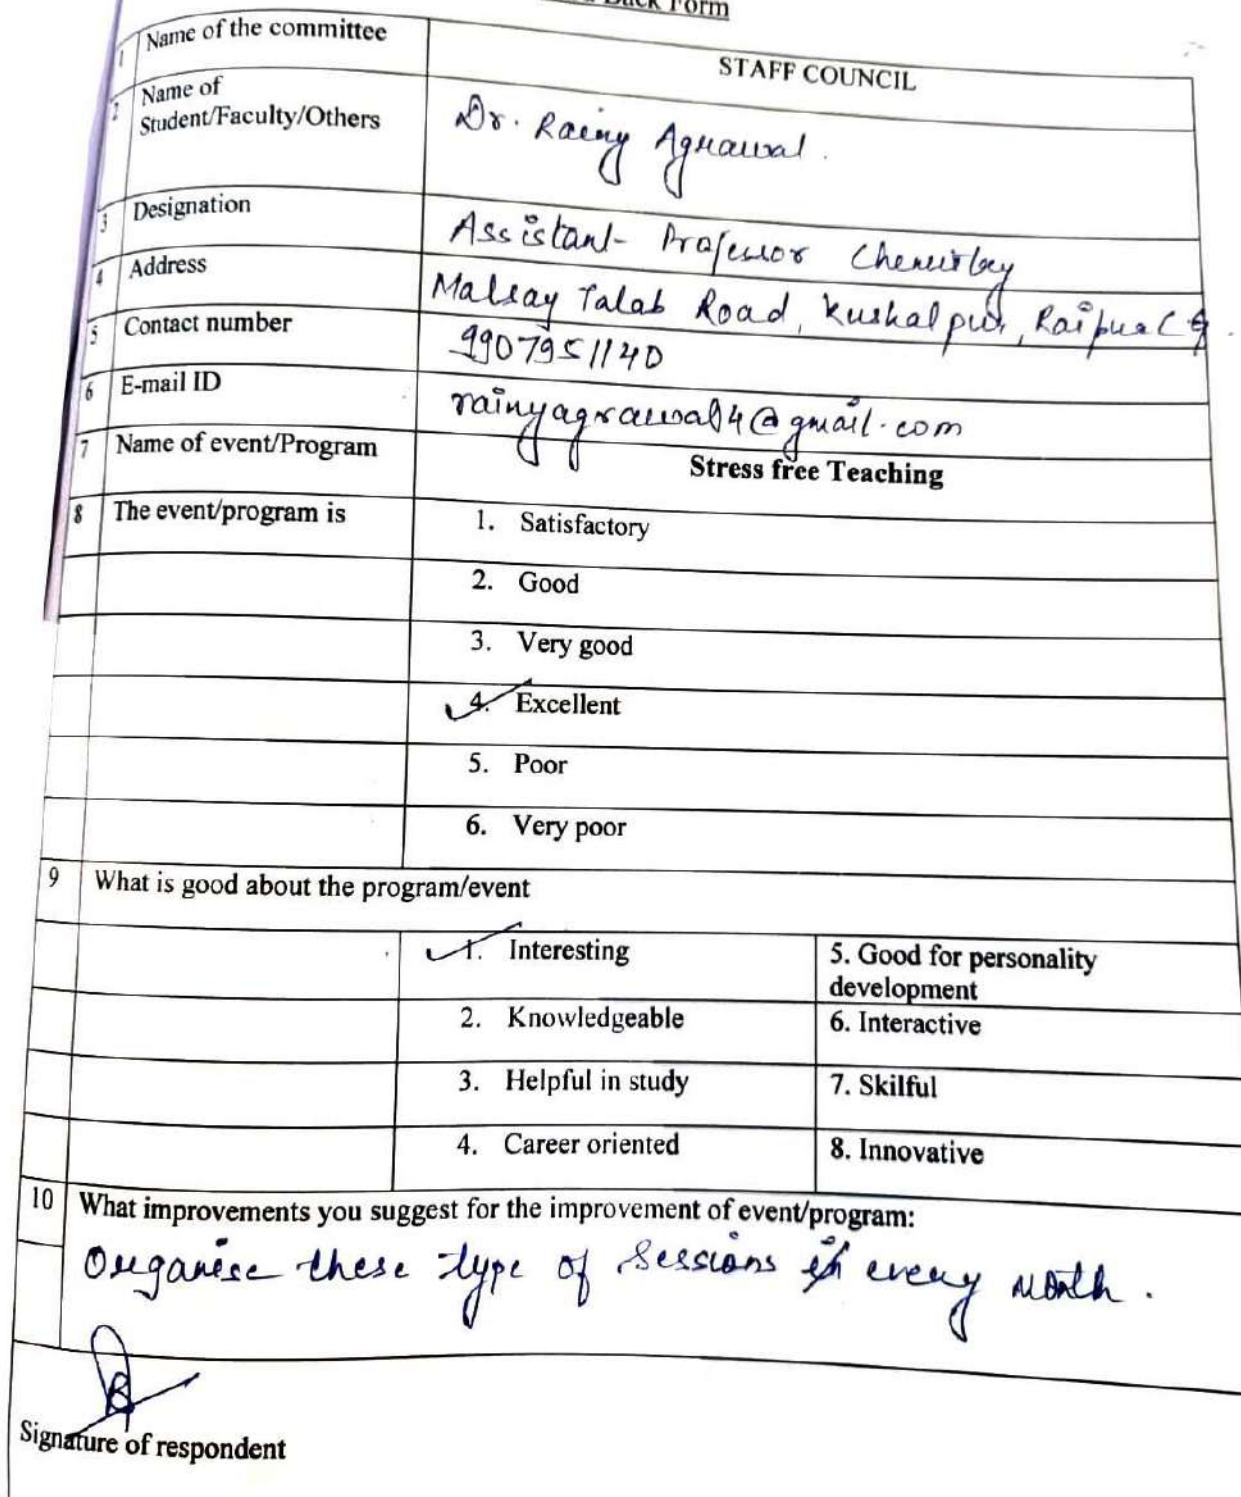 Back Form
1 Name of the committee STAFF COUNCIL
2 Name of
Student/Faculty/Others Dr. Rainy Agrawal.
3 Designation Assistant Professor Chemistry
4 Address Malsay Talab Road, Kushalpur, Raipur
5 Contact number 9907951140
6 E-mail ID rainyagrawal4@gmail.com
7 Name of event/Program Stress free Teaching
8 The event/program is 1. Satisfactory
2. Good
3. Very good
4. Excellent
5. Poor
6. Very poor
9 What is good about the program/event
1. Interesting 5. Good for personality
development
2. Knowledgeable 6. Interactive
3. Helpful in study 7. Skilful
4. Career oriented 8. Innovative
10 What improvements you suggest for the improvement of event/program:
Organise these type of sessions in every month.
Signature of respondent